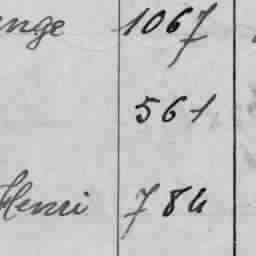 1067
561
Henri 784